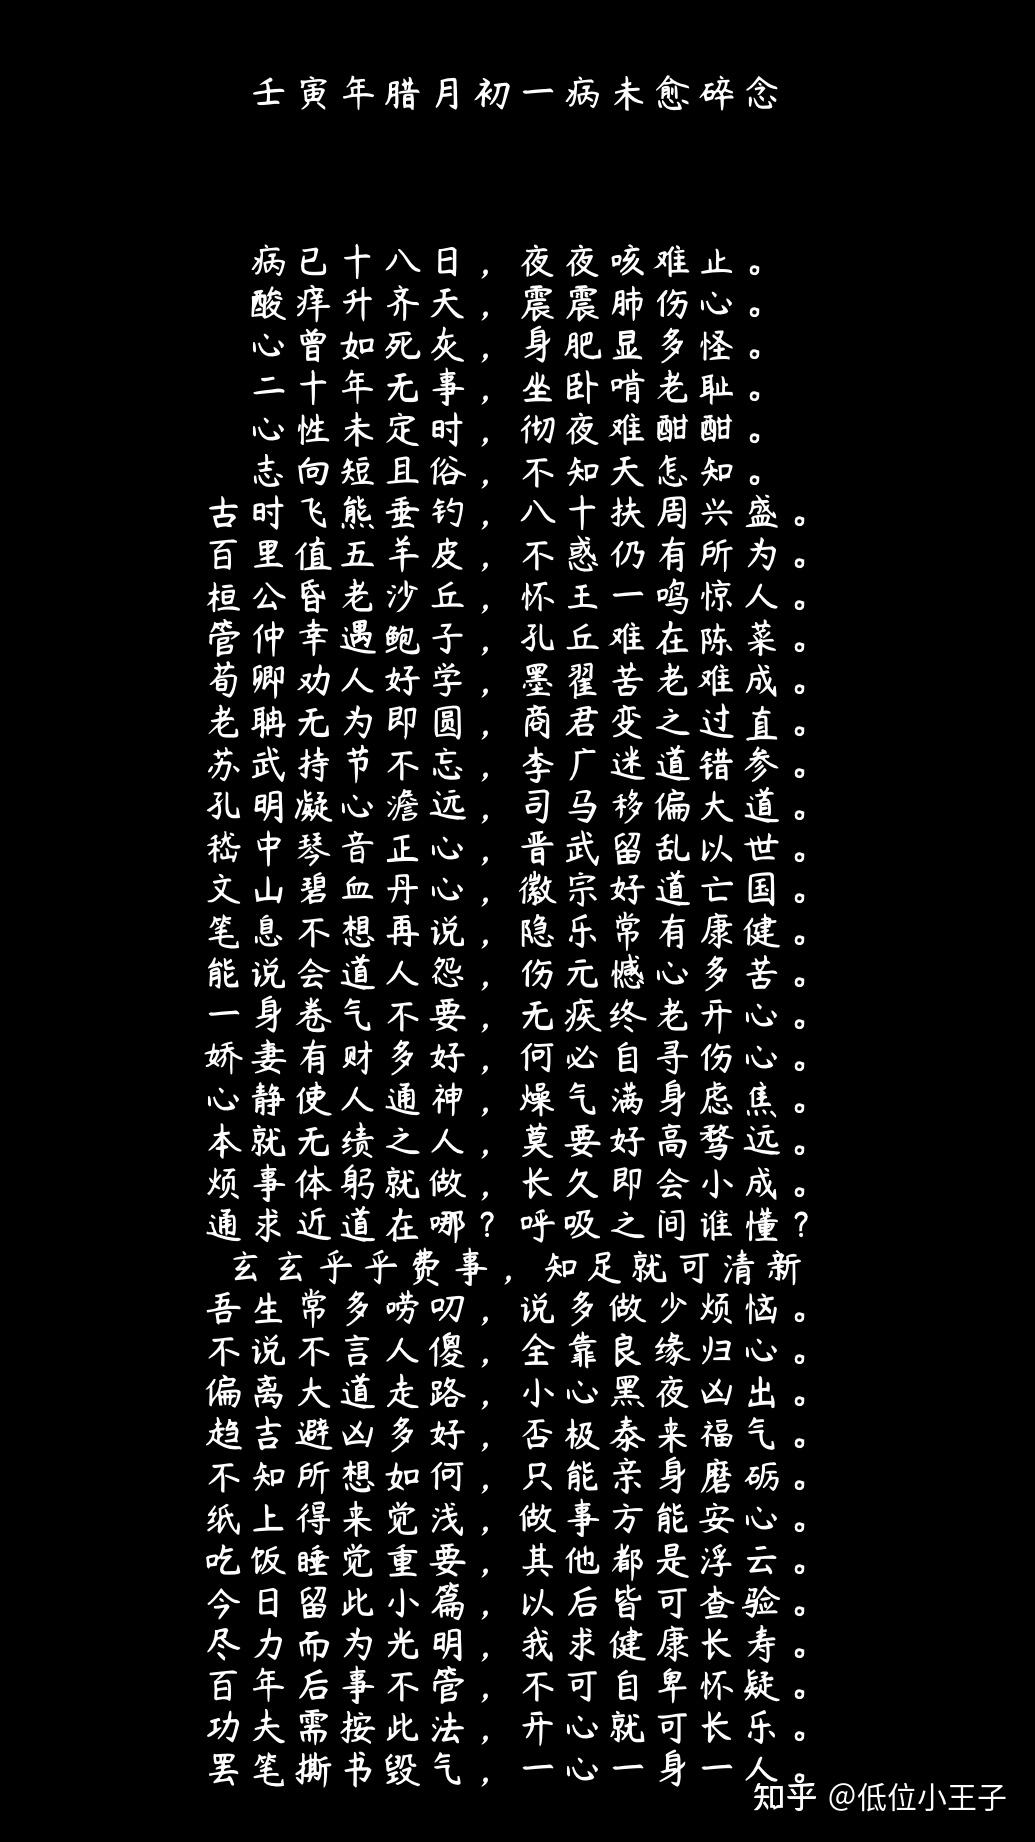 壬寅年腊月初一病未愈碎念
病已十八日，夜夜咳难止。
酸痒升齐天，震震肺伤心。
心曾如死灰，身肥显多怪。
二十年无事，坐卧啃老耻。
心性未定时，彻夜难酣酣。
志向短且俗，不知天怎知。
古时飞熊垂钓，八十扶周兴盛。
百里值五羊皮，不惑仍有所为。
桓公昏老沙丘，怀王一鸣惊人。
管仲幸遇鲍子，孔丘难在陈菜。
荀卿劝人好学，墨翟苦老难成。
老聃无为即圆，商君变之过直。
苏武持节不忘，李广迷道错参。
孔明凝心澹远，司马移偏大道。
嵇中琴音正心，晋武留乱以世。
文山碧血丹心，徽宗好道亡国。
笔息不想再说，隐乐常有康健。
能说会道人怨，伤元憾心多苦。
一身卷气不要，无疾终老开心。
娇妻有财多好，何必自寻伤心。
心静使人通神，燥气满身虑焦。
本就无绩之人，莫要好高骛远。
烦事体躬就做，长久即会小成。
通求近道在哪？呼吸之间谁懂？
玄玄乎乎费事，知足就可清新
吾生常多唠叨，说多做少烦恼。
不说不言人傻，全靠良缘归心。
偏离大道走路，小心黑夜凶出。
趋吉避凶多好，否极泰来福气。
不知所想如何，只能亲身磨砺。
纸上得来觉浅，做事方能安心。
吃饭睡觉重要，其他都是浮云。
今日留此小篇，以后皆可查验。
尽力而为光明，我求健康长寿。
百年后事不管，不可自卑怀疑。
功夫需按此法，开心就可长乐。
罢笔撕书毁气，一心一身一人。
知乎 @低位小王子